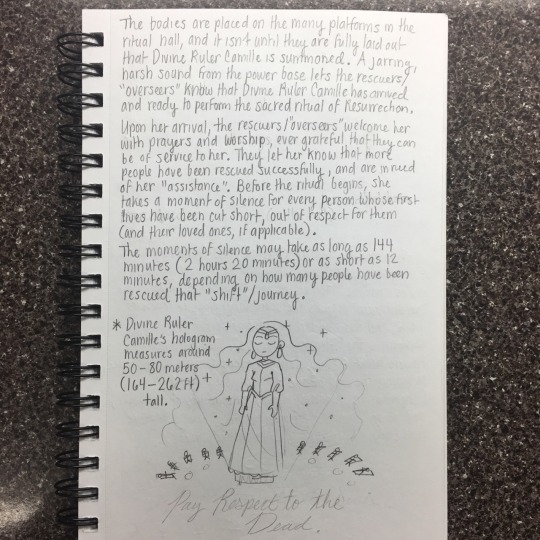 The bodies are placed on the many platforms in the
ritual hall, and it isn't until they are fully laid out
that Divine Ruler Camille is summoned. A jarring,
harsh sound from the power base lets the rescuers/
"overseers" know that Divine Ruler Camille has arrived
and ready to perform the sacred ritual of Resurrection.
Upon her arrival, the rescuers/"overseers" welcome her
with prayers and worship, ever grateful that they can
be of service to her. They let her know that more
people have been rescued successfully, and are in need
of her "assistance". Before the ritual begins, she
takes a moment of silence for every person whose first
lives have been cut short, out of respect for them
(and their loved ones, if applicable).
The moments of silence may take as long as 144
minutes (2 hours 20 minutes) or as short as 12
minutes, depending on how many people have been
rescued that "shift"/journey.
* Divine Ruler
Camille's hologram
measures around
50-80 meters
(164-262 ft)
tall.
Pay Respect to the
Dead.